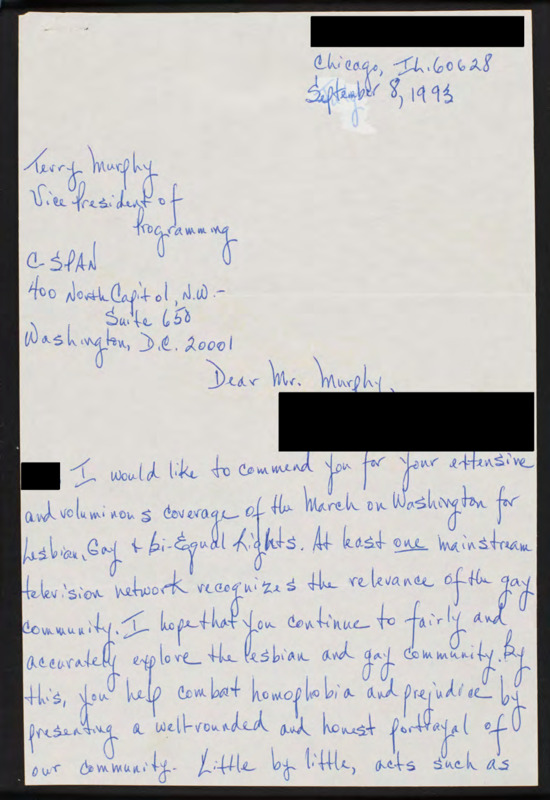 Chicago, Il. 60628
September 8, 1993
Terry Murphy
Vice President of
Programming
C-SPAN
400 North Capitol, N.W.-
Suite 650
Washington, D.C. 20001
Dear Mr. Murphy,
I would like to commend you for your extensive
and voluminous coverage of the March on Washington for
Lesbian, Gay & Bi-Equal Rights. At least one mainstream
television network recognizes the relevance of the gay
community. I hope that you continue to fairly and
accurately explore the lesbian and gay community. By
this, you help combat homophobia and prejudice by
presenting a well-rounded and honest portrayal of
our community. Little by little, acts such as